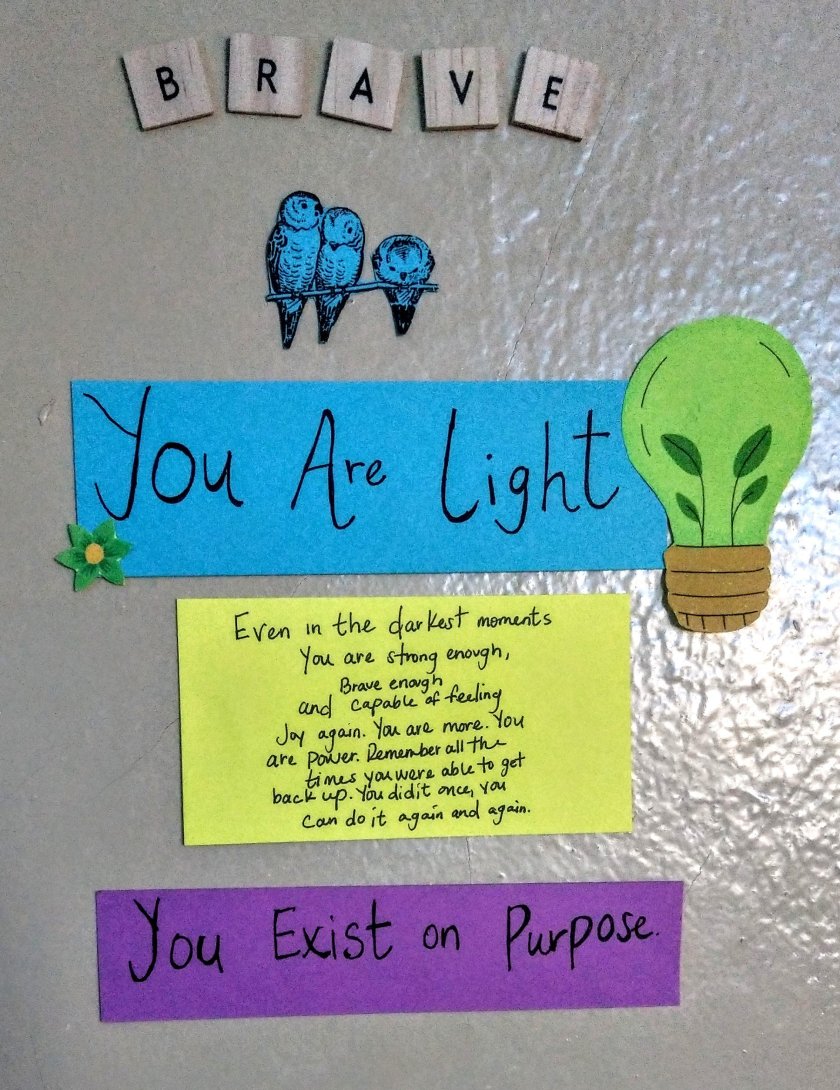 BRAVE
You Are Light
Even in the darkest moments
You are strong enough,
Brave enough
and capable of feeling
Joy again. You are more. You
are power. Remember all the
times you were able to get
back up. You did it once, you
can do it again and again.
You Exist on Purpose.